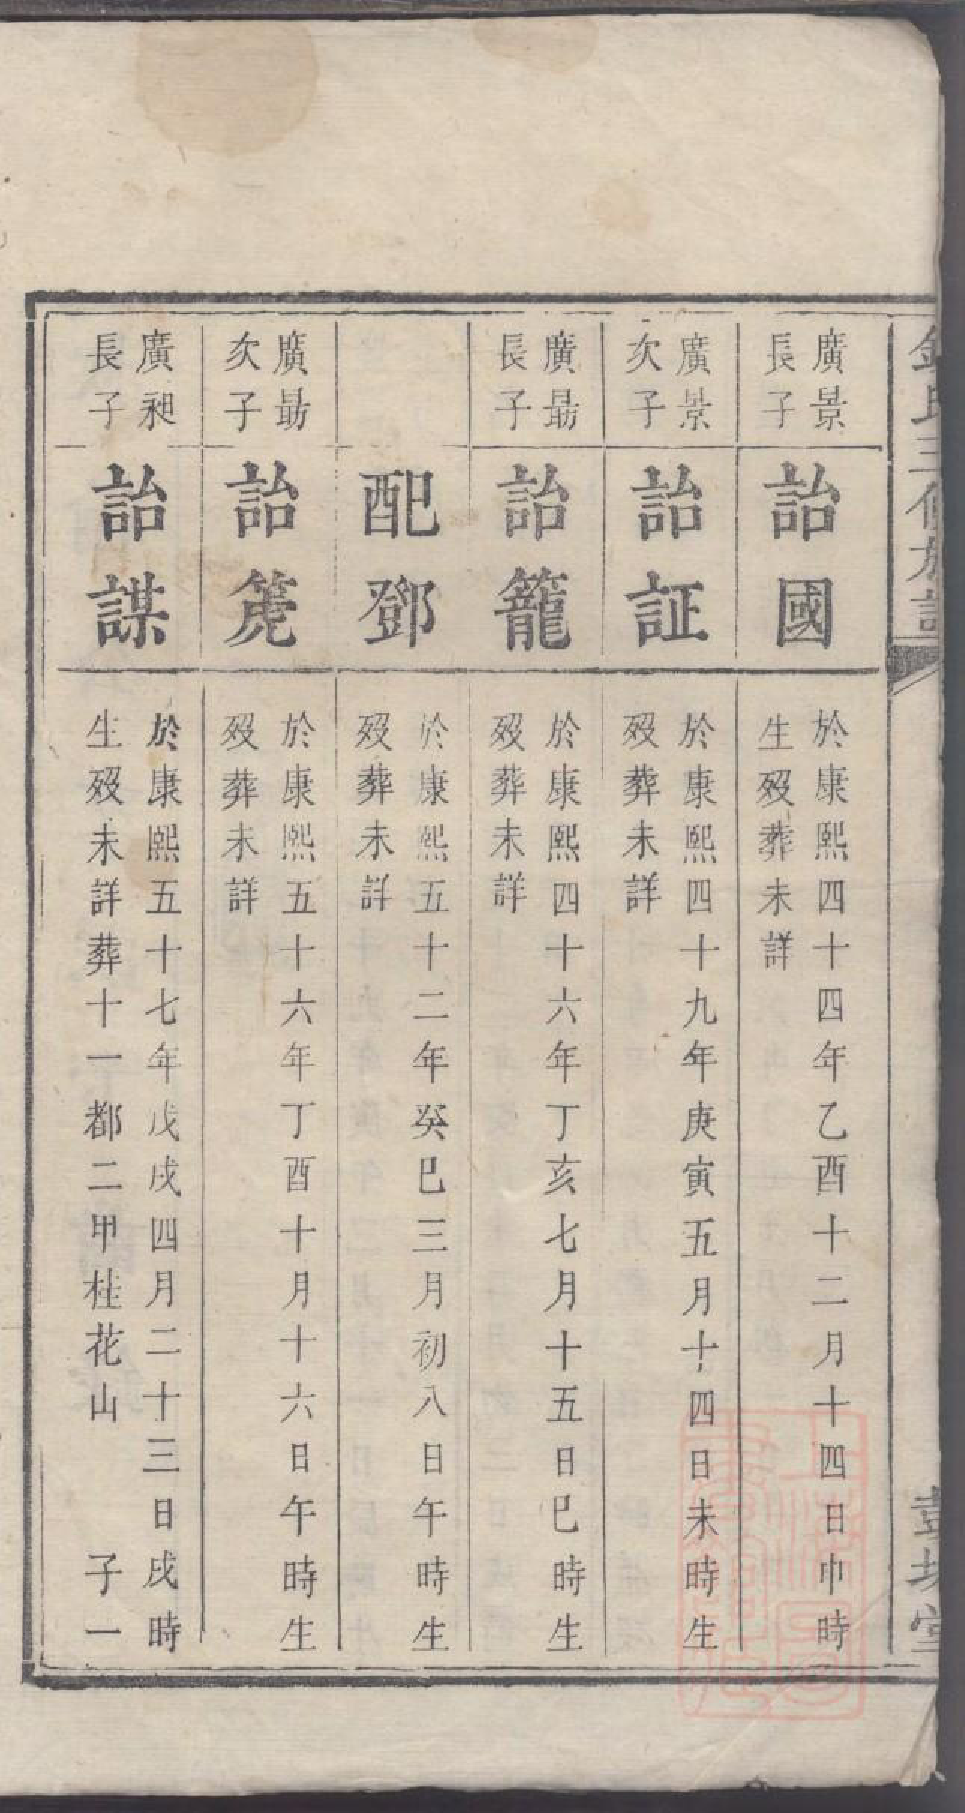 氏三修族譜
堂
廣景
長子
詒國
於康熙四十四年乙酉十二月十四日巾時
生歿葬未詳
廣景
次子
詒証
於康熙四十九年庚寅五月十四日未時生
歿葬未詳
廣最
長子
詒籠
於康熙四十六年丁亥七月十五日巳時生
歿葬未詳
配鄧
於康熙五十二年癸巳三月初八日午時生
歿葬未詳
廣最
次子
詒箎
於康熙五十六年丁酉十月十六日午時生
歿葬未詳
廣昶
長子
詒謀
於康熙五十七年戊戌四月二十三日戌時
生歿未詳葬十一都二甲桂花山 子一